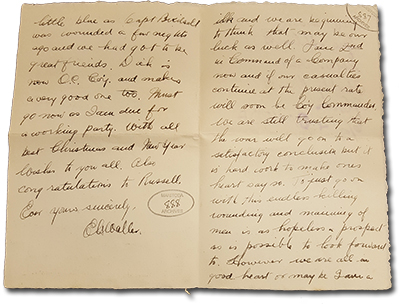 little blue as Capt Bicknell
was wounded a few nights
ago and we had got to be
great friends. Dick is
now O.C. Coy. and makes
a very good one too. Must
go now as I am due for
a working party. With all
best Christmas and New Year
Wishes to you all. Also
congratulations to Russell.
Ever yours sincerely,
888
ARCHIVES
idle and we are beginning
to think that may be our
luck as well. I am 2nd
in Command of a Company
now and if our casualties
continue at the present rate
will soon be Coy Commander.
We are still trusting that
the war will go on to a
satisfactory conclusion but it
is hard work to make ones
heart say so. To just go on
with this endless killing
wounding and maiming of
men is as hopeless a prospect
as is possible to look forward
to. However we are all in
good heart or maybe I have a